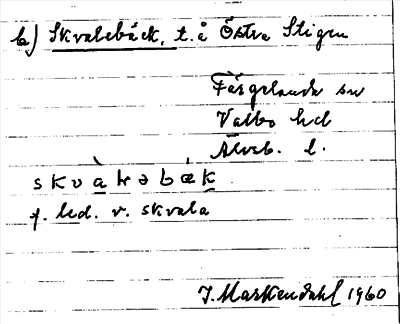 b) Skvalebäck, t. å Östra Stigen
Färgelanda sn
Valbo hd
Älvsb. l.
skvàlrəbǽk
f. led. v. skvala
J. Markendahl 1960